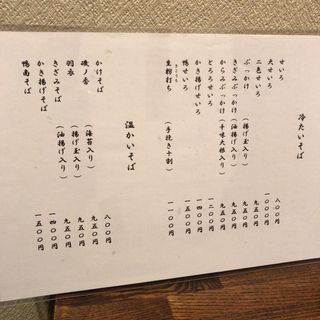 冷たいそば
せいろ 八〇〇円
大せいろ 一〇〇〇円
二色せいろ 九五〇円
ぶっかけ（揚げ玉入り） 九五〇円
きざみぶっかけ（油揚げ入り） 九五〇円
からみぶっかけ（辛味大根入り） 九五〇円
とろろせいろ 一二〇〇円
かき揚げせいろ 一四〇〇円
鴨せいろ 一五〇〇円
生粉打ち（手挽き十割） 一一〇〇円
温かいそば
かけそば 八〇〇円
磯ノ香（海苔入り） 九五〇円
羽衣（揚げ玉入り） 九五〇円
きざみそば（油揚げ入り） 九五〇円
かき揚げそば 一四〇〇円
鴨南そば 一五〇〇円